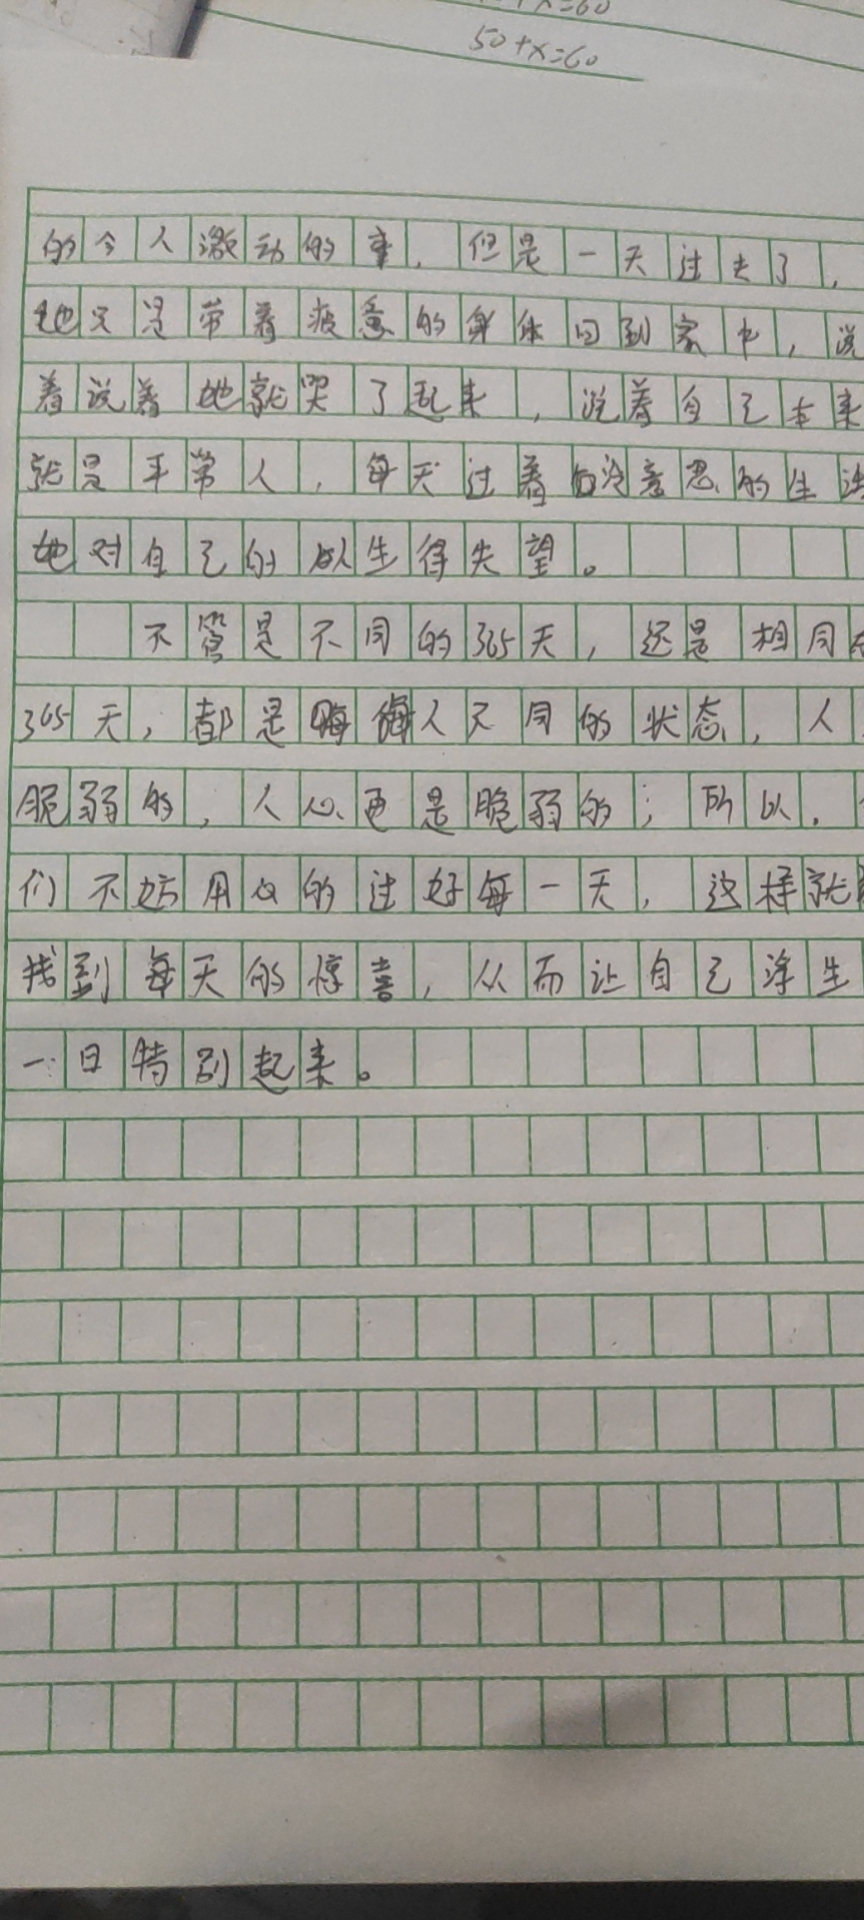 +x=60
50+x=60
的令人激动的事，但是一天过去了，
她只是带着疲惫的身体回到家中，说
着说着她就哭了起来，说着自己本来
就是平常人，每天过着没意思的生活
她对自己的人生得失望。
不管是不同的365天，还是相同
365天，都是人不同的状态，人
脆弱的，人心更是脆弱的；所以，
们不妨用心的过好每一天，这样就
找到每天的惊喜，从而让自己浮生
一日特别起来。